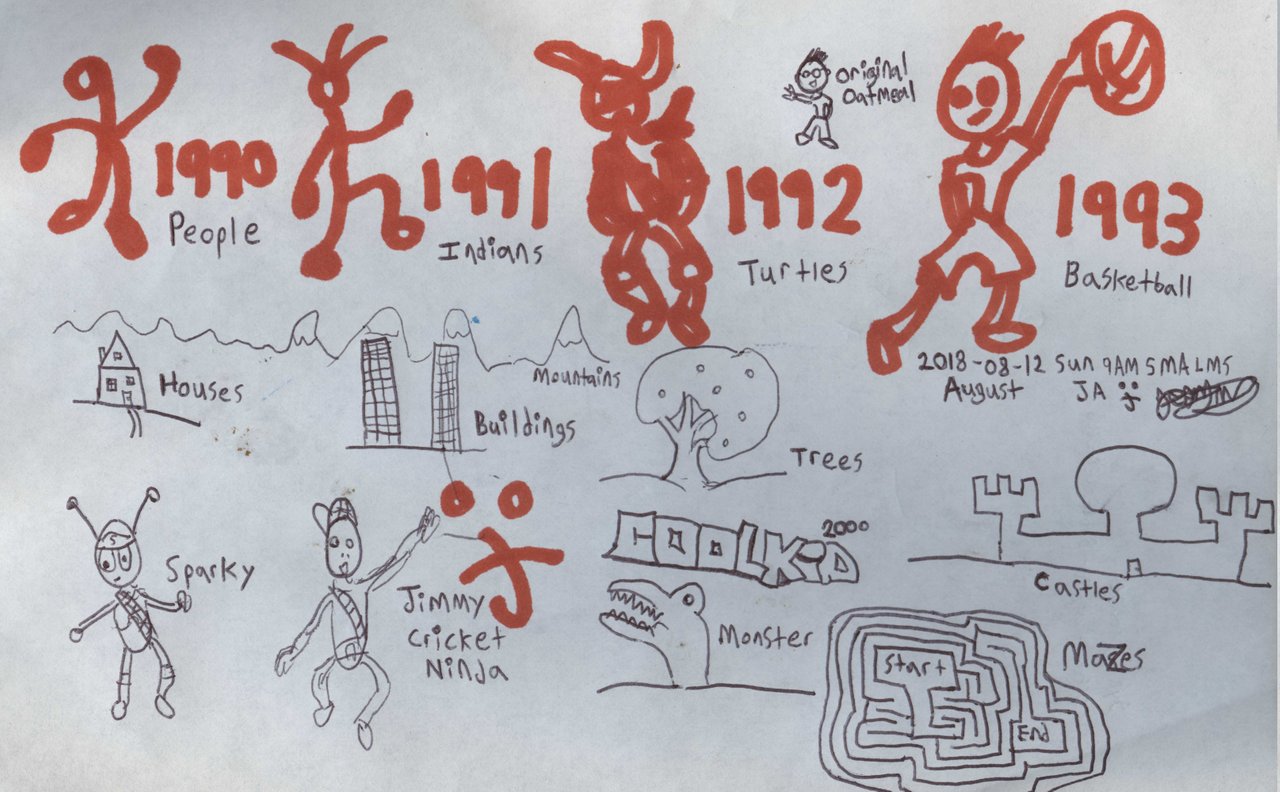 1990
People
1991
Indians
1992
Turtles
Original
Oatmeal
1993
Basketball
2018-08-12 Sun 9AM SMALMS
August JA
Houses
Buildings
Mountains
Trees
Sparky
S
Jimmy
Cricket
Ninja
COOLKiD
2000
Monster
Castles
Mazes
Start
End